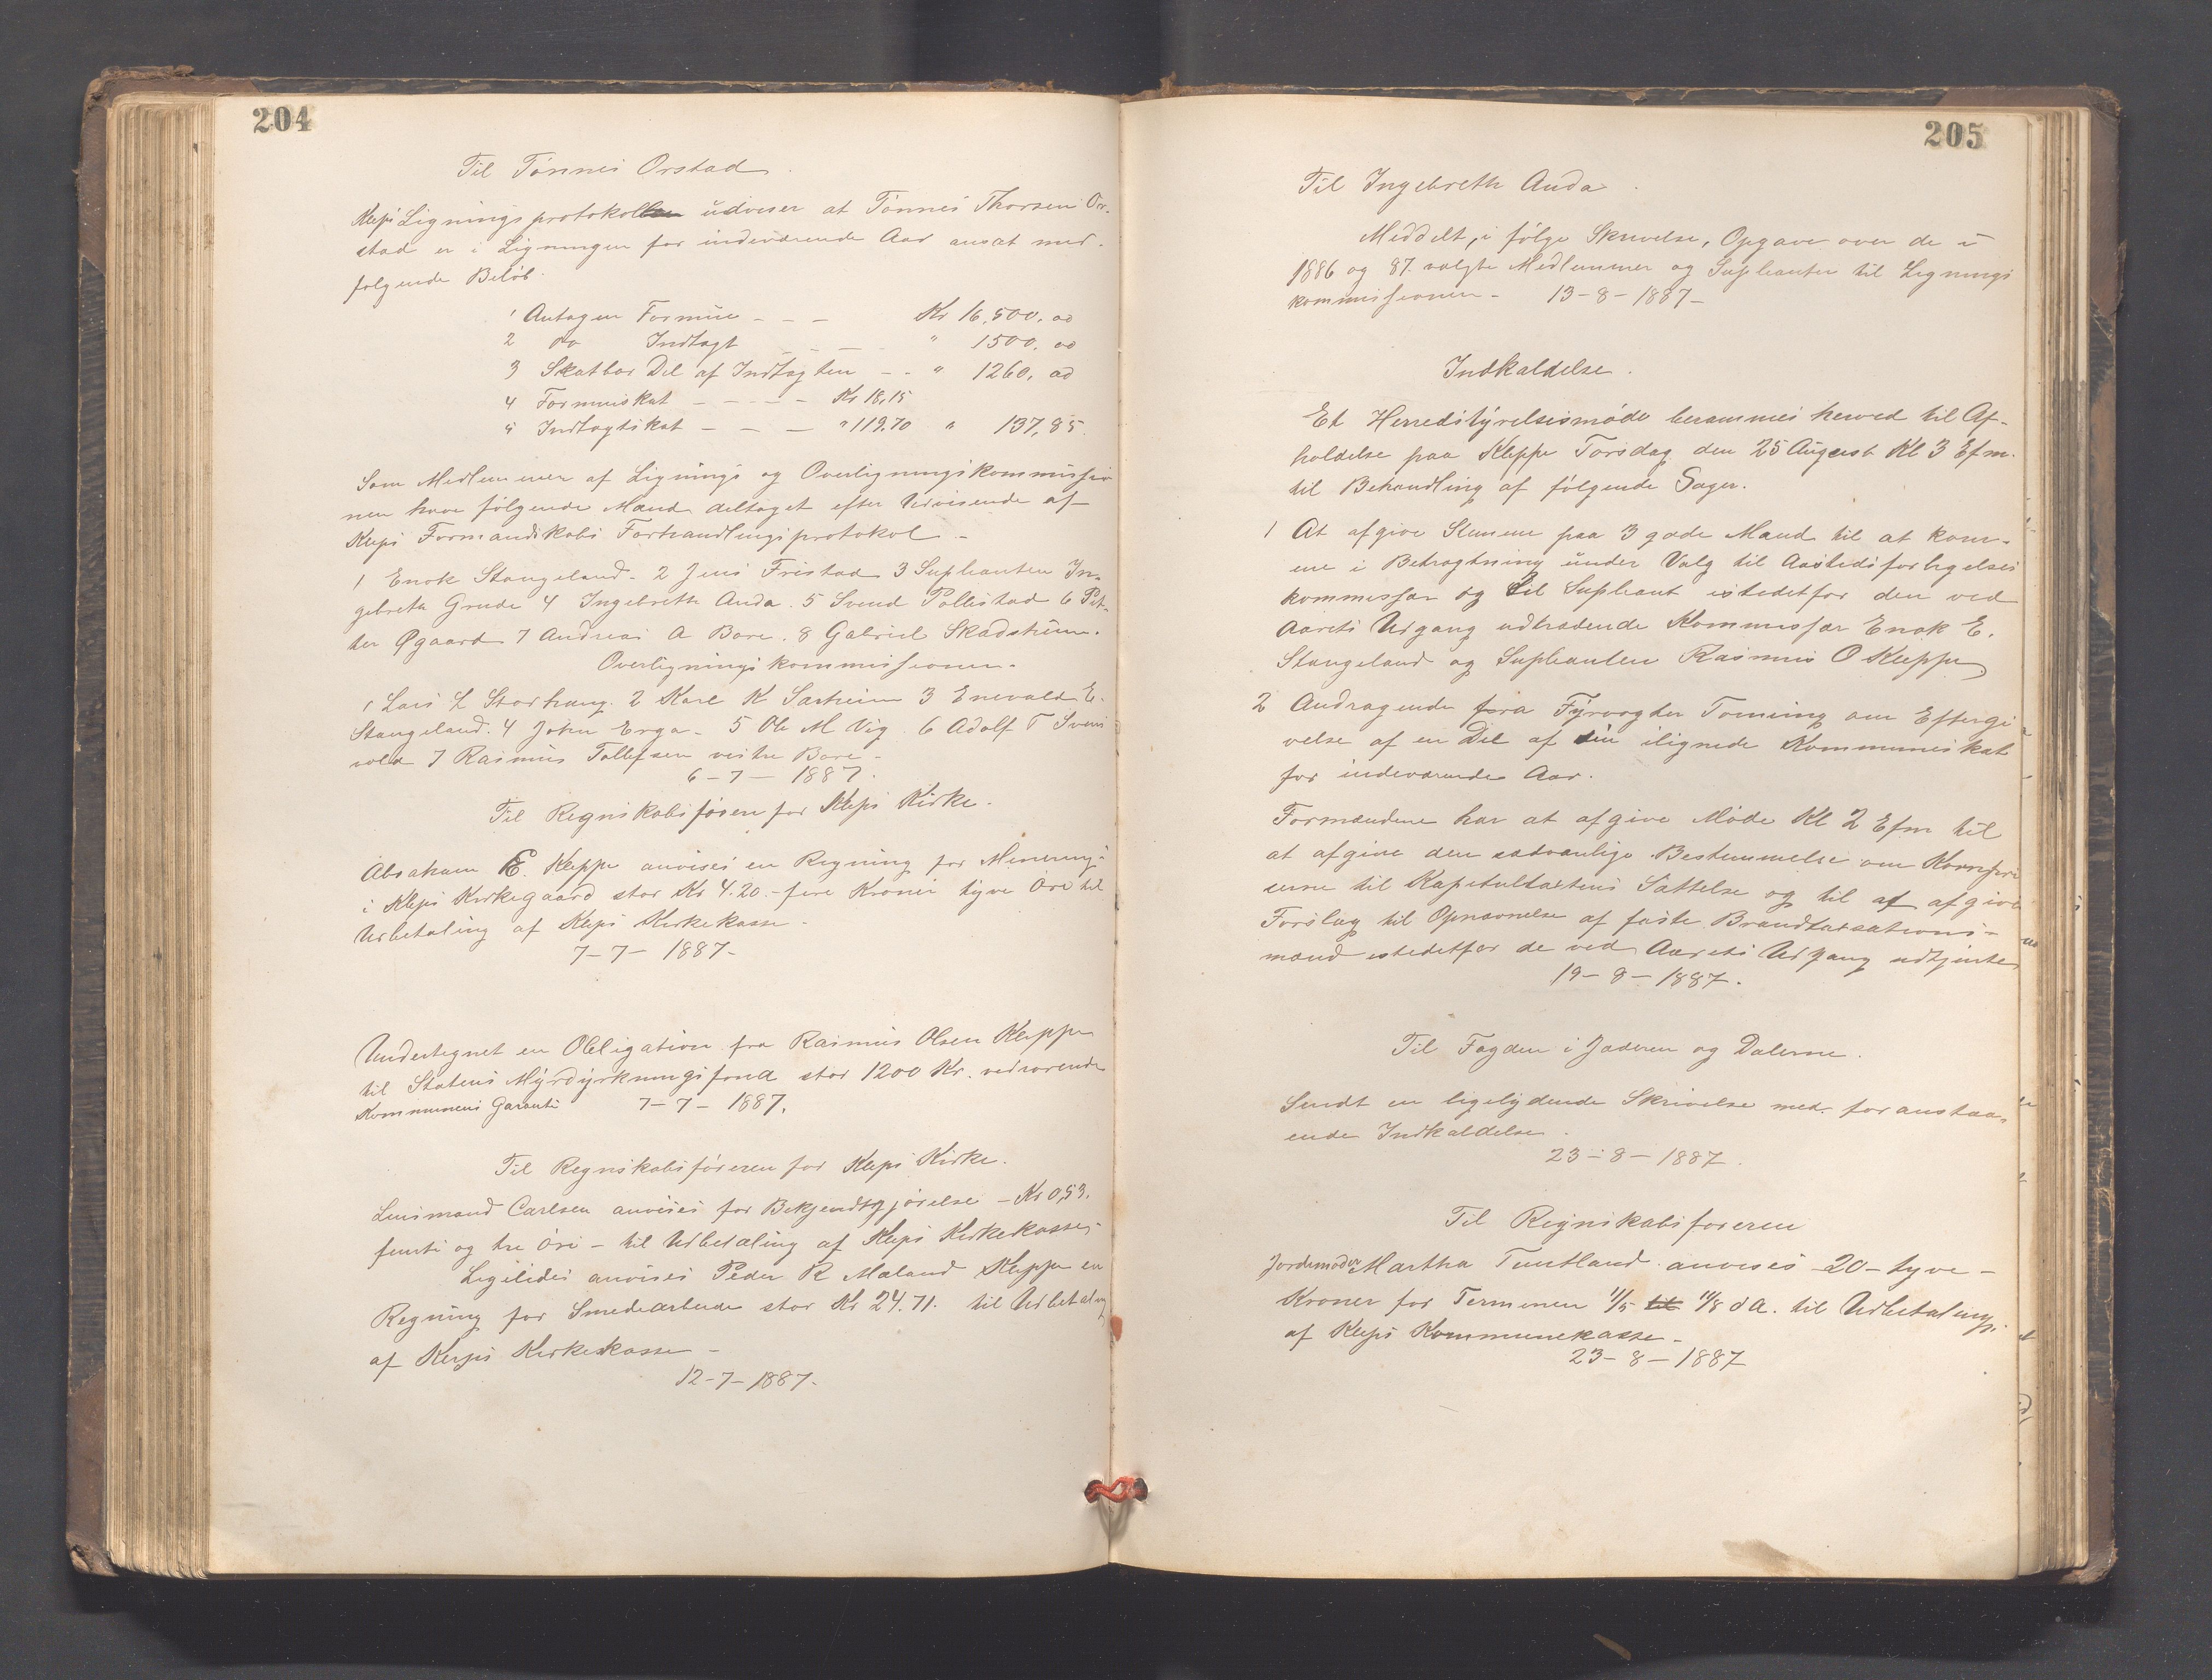 204
Til Tønnes Orstad.
Kleps Ligningsprotokol udviser at Tønnes Thorsen Or-
stad er i Ligningen for indeværende Aar ansat med
følgende Beløb.
1 Antagen Formue - - - Kr 16,500. 00
2 do Indtægt - - - " 1500. 00
3 Skatbar Del af Indtægten - - " 1260. 00
4 Formueskat - - - - Kr 18,15
5 Indtægtskat - - - " 119.70 " 137,85.
Som Medlemmer af Lignings og Overligningskommissio
nen have følgende Mænd deltaget efter Udvisende af
Kleps Formandskabs Forhandlingsprotokol -
1 Enok Stangeland - 2 Jens Fristad 3 Suplianten In-
gebreth Grude 4 Ingebreth Anda. 5 Svend Pollestad 6 Pet-
ter Øgaard 7 Andreas A Bore. 8 Gabriel Skadsheim.
Overligningskommissionen.
1 Lars L Storhaug. 2 Karl K Sørheim 3 Enevald E.
Stangeland. 4 John Erga - 5 Ole M Vig. 6 Adolf T Svens
vold 7 Rasmus Tollefsen vestre Bore -
6 - 7 - 1887.
Til Regnskabsføren for Kleps Kirke.
Abraham E. Kleppe anvises en Regning for Minering
i Kleps Kirkegaard stor Kr 4.20 - fire Kroner tyve Øre til
Udbetaling af Kleps Kirkekasse.
7 - 7 - 1887 -
Undertegnet en Obligation fra Rasmus Olsen Kleppe
til Statens Myrdyrkningsfond stor 1200 Kr. vedrørende
Kommunens Garanti 7 - 7 - 1887.
Til Regnskabsføreren for Kleps Kirke.
Lensmand Carlsen anvises for Bekjendtgjørelse - Kr 0,53.
femti og tre Øre - til Udbetaling af Kleps Kirkekasse,
Ligeledes anvises Peder R Maland Kleppe en
Regning for Smedearbeide stor Kr 24.71. til Udbetaling
af Kleps Kirkekasse -
12 - 7 - 1887.
205
Til Ingebreth Anda.
Meddelt, i følge Skrivelse, Opgave over de i
1886 og 87. valgte Medlemmer og Suplianter til Lignings
kommissionen - 13 - 8 - 1887 -
Indkaldelse.
Et Herredstyrelsesmøde berammes herved til Af-
holdelse paa Kleppe Torsdag den 25 August Kl 3 Efm.
til Behandling af følgende Sager.
1 At afgive Stemme paa 3 gode Mænd til at kom-
me i Betragtning under Valg til Aastedsforligelses
kommissær og til Supliant istedetfor den ved
Aarets Udgang udtrædende Kommissær Enok E.
Stangeland og Suplianten Rasmus O Kleppe
2 Andragende fra Fyrvogter Tonning om Eftergi
velse af en Del af sin ilignede Kommuneskat
for indeværende Aar.
Formændene har at afgive Møde Kl 2 Efm til
at afgive den sædvanlige Bestemmelse om Kornpri
serne til Kapitultaxtens Sættelse og til at afgive
Forslag til Opnævnelse af faste Brandtaxations-
mænd istedetfor de ved Aarets Udgang udtjente
19 - 8 - 1887.
Til Fogden i Jæderen og Dalerne.
Sendt en ligelydende Skrivelse med foranstaa
ende Indkaldelse.
23 - 8 - 1887.
Til Regnskabsføreren
Jordemoder Martha Tuntland anvises - 20 - tyve -
Kroner for Terminen 11/5 til 11/8 d A. til Udbetaling
af Kleps Kommunekasse -
23 - 8 - 1887